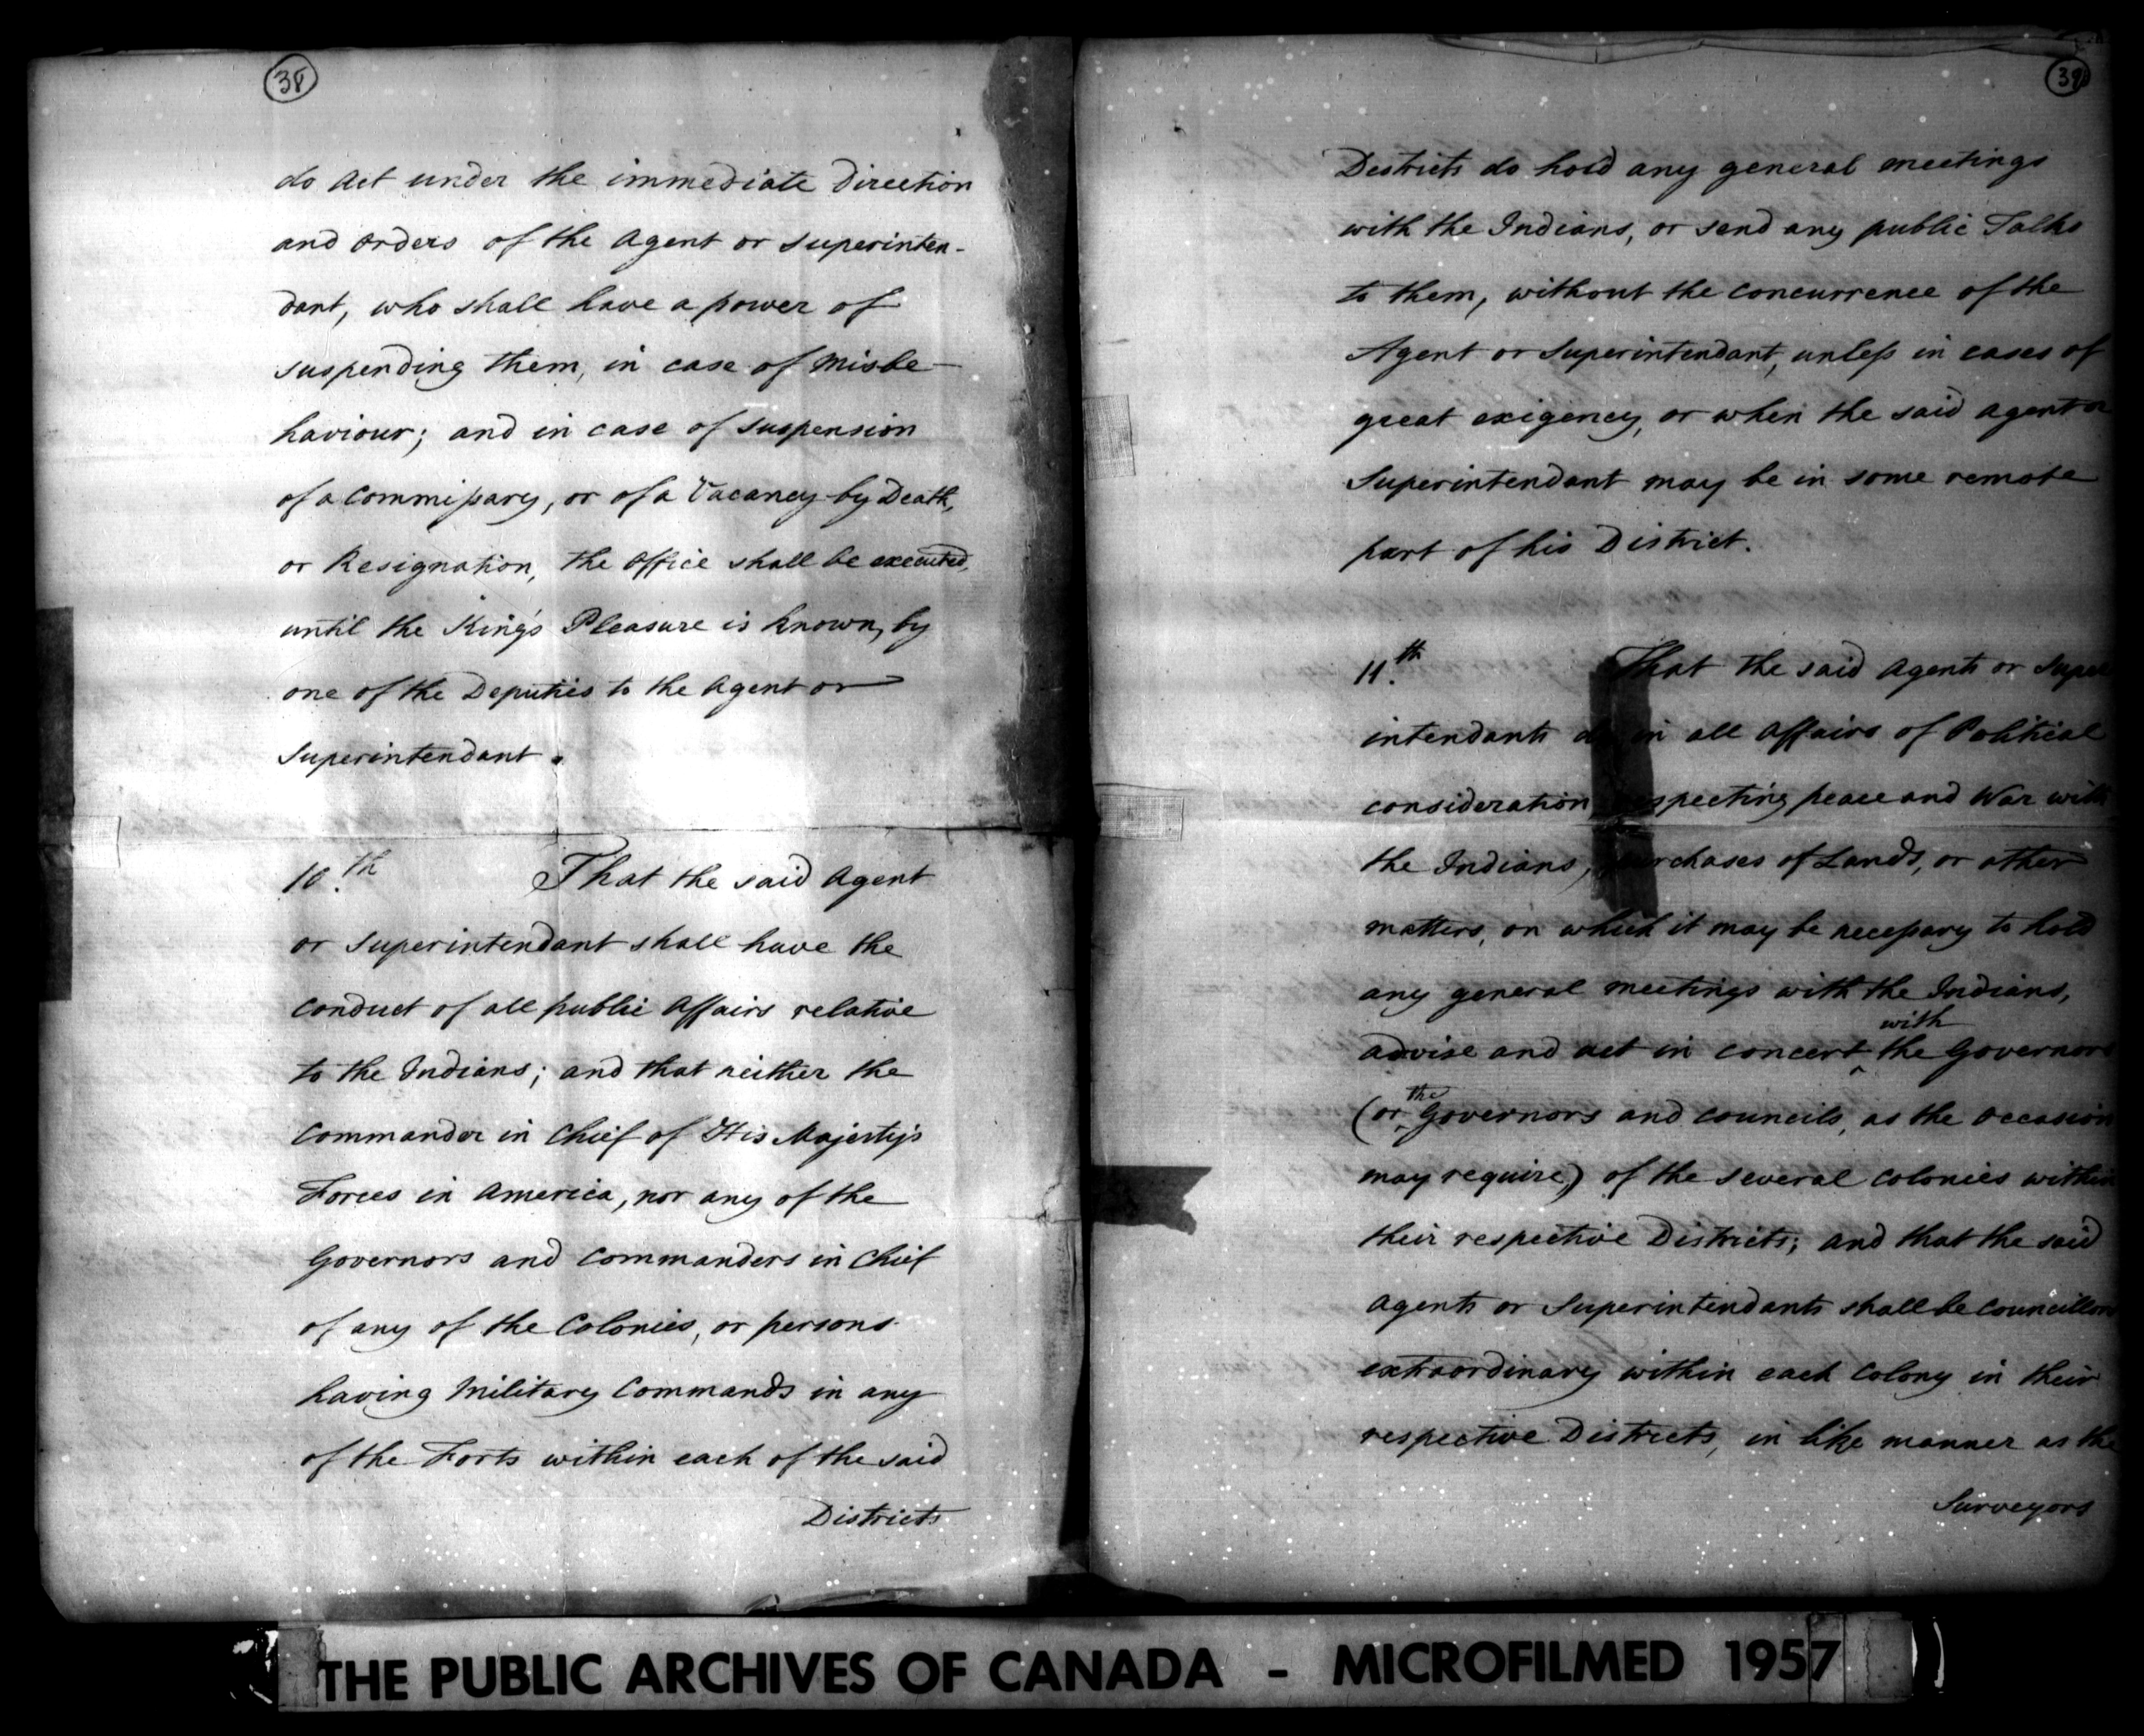 38
do Act under the immediate Direction
and Orders of the Agent or Superinten-
dant, who shall have a power of
suspending them, in case of Misbe-
haviour; and in case of Suspension
of a Commissary, or of a Vacancy by Death,
or Resignation, the Office shall be executed,
until the King's Pleasure is known, by
one of the Deputies to the Agent or
Superintendant.
10.th That the said Agent
or Superintendant shall have the
Conduct of all public Affairs relative
to the Indians; and that neither the
Commander in Chief of His Majesty's
Forces in America, nor any of the
Governors and Commanders in Chief
of any of the Colonies, or persons
having Military Commands in any
of the Forts within each of the said
Districts
39
Districts do hold any general meetings
with the Indians, or send any public Talks
to them, without the concurrence of the
Agent or Superintendant, unless in cases of
great exigency, or when the said Agent or
Superintendant may be in some remote
part of his District.
11.th That the said Agents or Super
intendants do in all Affairs of Political
consideration, respecting peace and War with
the Indians, purchases of Lands, or other
matters, on which it may be necessary to hold
any general meetings with the Indians,
advise and act in concert with the Governors
(or the Governors and Councils, as the Occasion
may require,) of the several Colonies within
their respective Districts; and that the said
Agents or Superintendants shall be Councillors
extraordinary within each Colony in their
respective Districts, in like manner as the
Surveyors
THE PUBLIC ARCHIVES OF CANADA - MICROFILMED 1957